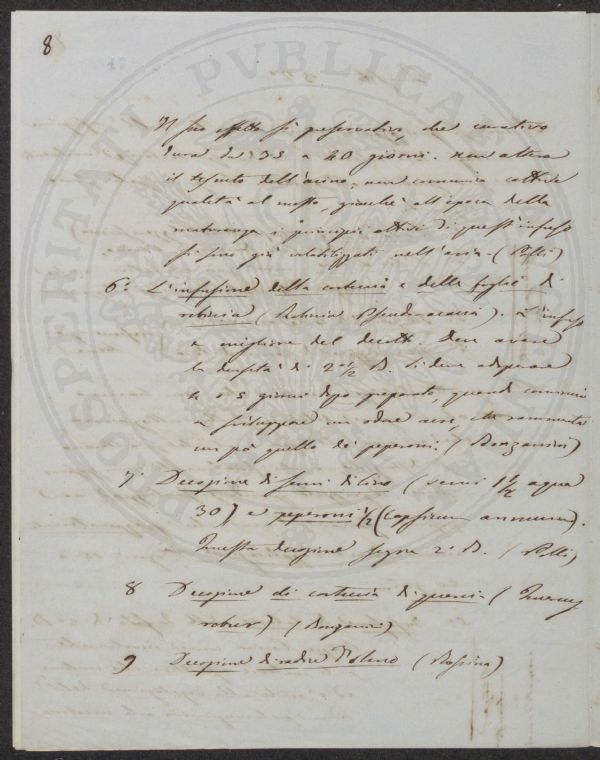 8
Il suo effetto sì preservativo, che curativo
dura da 35 a 40 giorni. Non altera
il tessuto dell'acino, non comunica cattive
qualità al mosto giacché all'epoca della
maturanza i principj attivi di quest'infuso
si sono già volatilizzati nell'aria. (Polli)
6.° L'infusione della corteccia e delle foglie di
robinia (Robinia Pseudo-acacia). L'infuso
è migliore del decotto. Deve avere
la densità di 2° ½ B. Si deve adoperare
4 o 5 giorni dopo preparato, quando comincia
a sviluppare un odore acre, che rammenta
un pò quello dei peperoni. (Bonzanini)
7. Decozione di semi di lino (semi 1 ½ acqua
30) e peperoni ½ (Capsicum annuum).
Questa decozione segna 2° B. (Polli)
8 Decozione di corteccia di quercia (Quercus
robur) (Bonzanini)
9 Decozione di radice (Rossina)
PROSPERITATI PVBLICAE